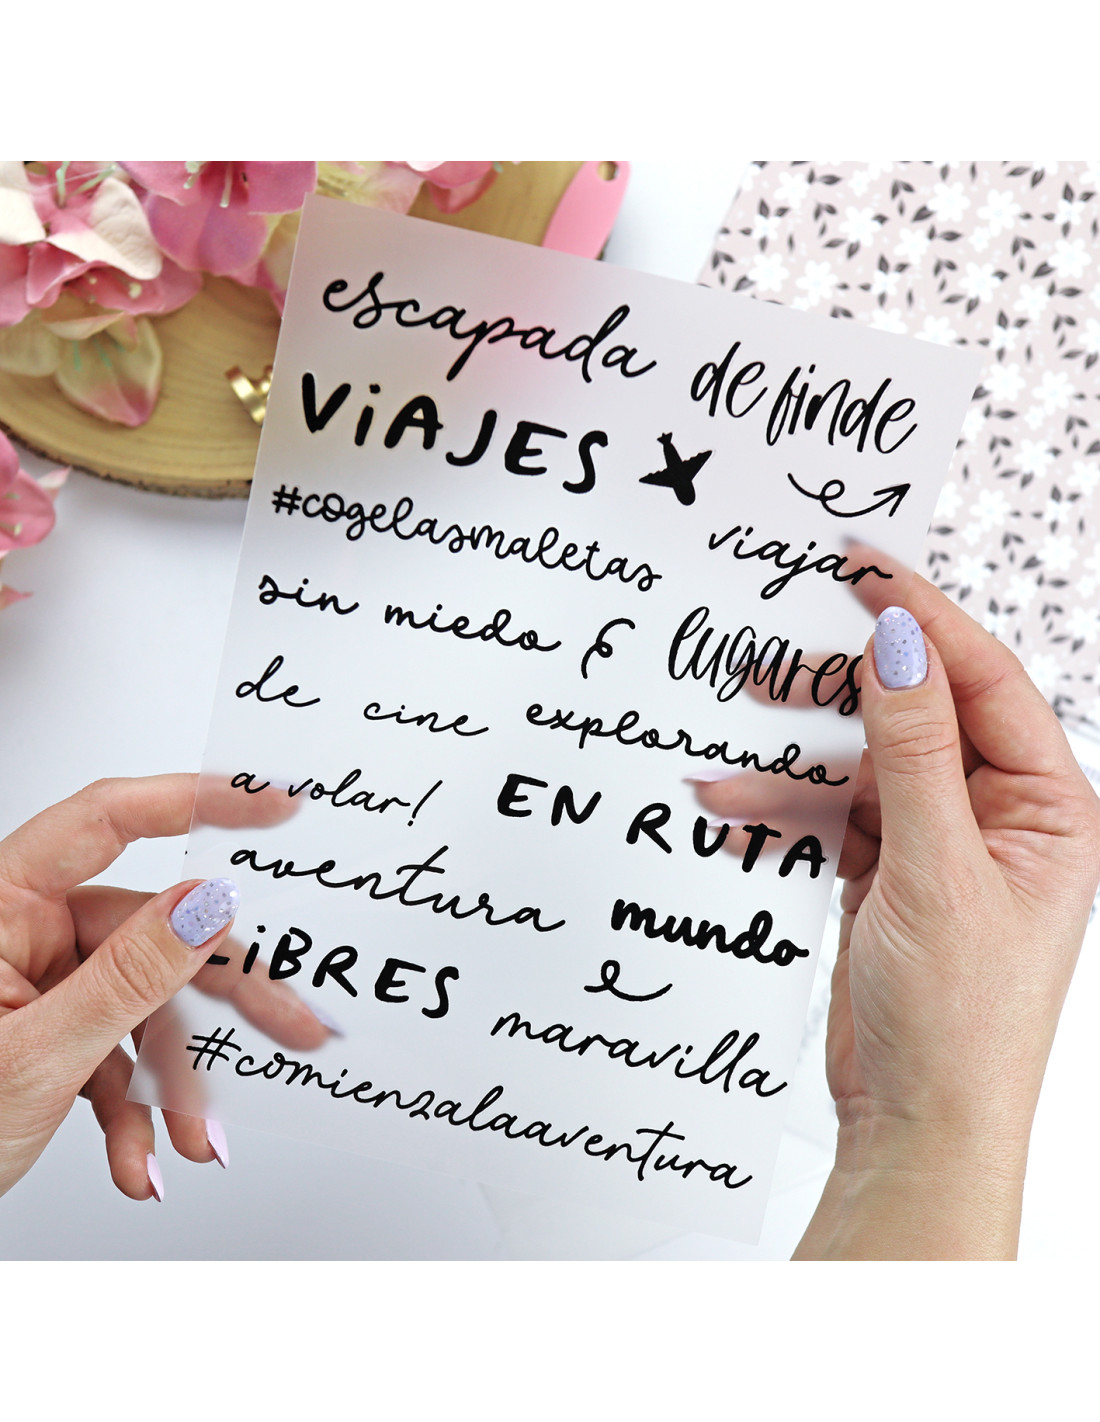 escapada de finde
VIAJES
#cogelasmaletas viajar
sin miedo & lugares
de cine explorando
a volar! EN RUTA
aventura mundo
LIBRES maravilla
#comienzalaaventura